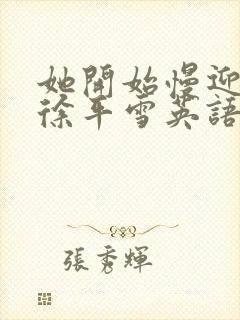 她開始慢迎
徐平雪英語
張秀輝